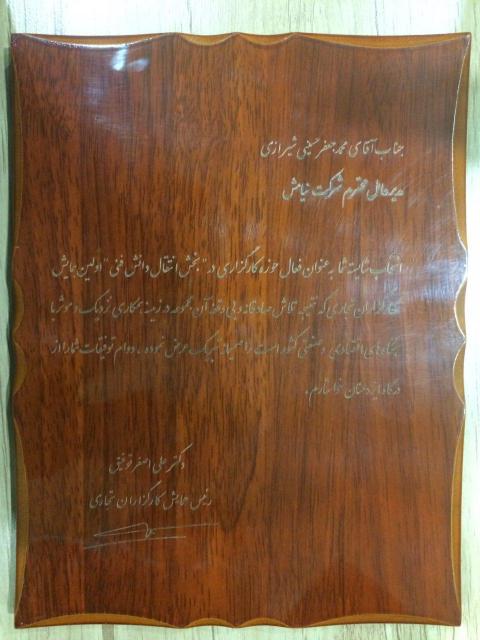 جناب آقای محمد جعفر حسینی شیرازی
مدیرعامل محترم شرکت نیامش
انتخاب شایسته شما به عنوان فعال حوزه کارگزاری در "بخش انتقال دانش فنی" اولین همایش
کارگزاران تجاری که نتیجه تلاش صادقانه و بی وقفه آن مجموعه در زمینه همکاری نزدیک و موثر با
بنگاه‌های اقتصادی و صنعتی کشور است را صمیمانه تبریک عرض نموده، دوام توفیقات شما را از
درگاه ایزد منان خواستارم.
دکتر علی اصغر توفیق
رئیس همایش کارگزاران تجاری